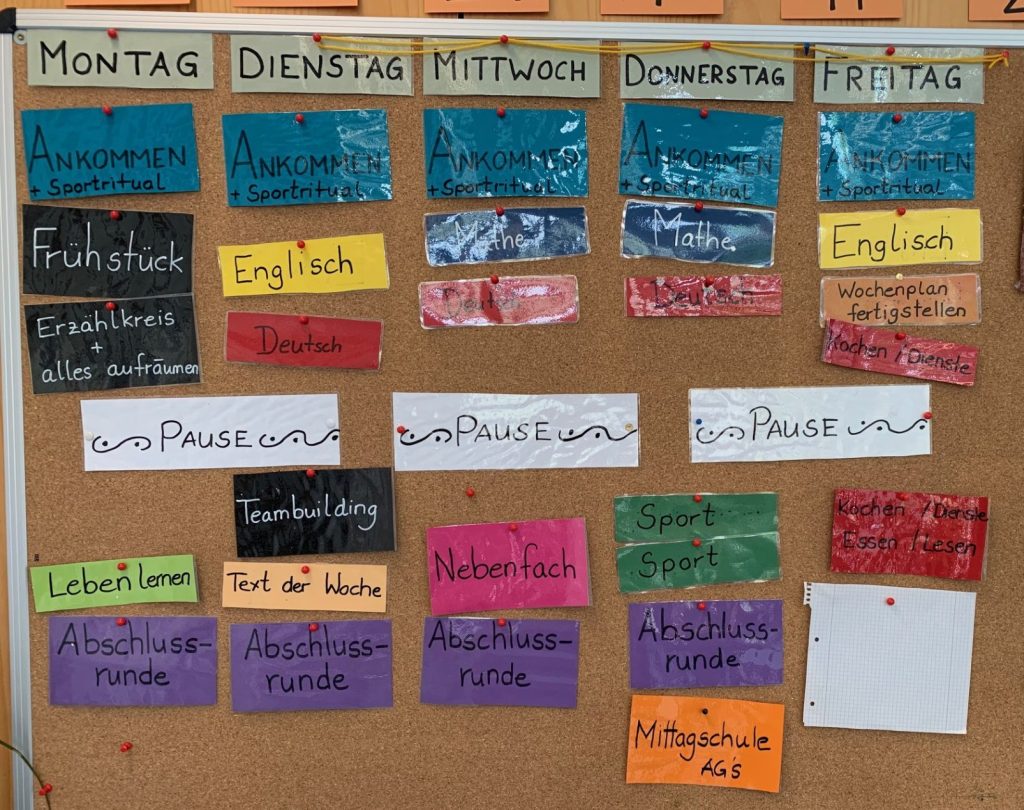 MONTAG DIENSTAG MITTWOCH DONNERSTAG FREITAG
ANKOMMEN
+ Sportritual
ANKOMMEN
+ Sportritual
ANKOMMEN
+ Sportritual
ANKOMMEN
+ Sportritual
ANKOMMEN
+ Sportritual
Frühstück
Englisch
Mathe
Mathe
Englisch
Erzählkreis
+
alles aufräumen
Deutsch
Deutsch
Deutsch
Wochenplan
fertigstellen
Kochen / Dienste
PAUSE PAUSE PAUSE
Teambuilding
Nebenfach
Sport
Sport
Kochen / Dienste
Essen / Lesen
Leben lernen
Text der Woche
Abschluss-
runde
Abschluss-
runde
Abschluss-
runde
Abschluss-
runde
Mittagschule
AG's